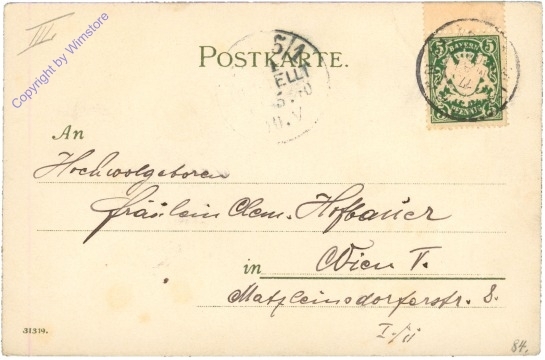 III
Copyright by Wimstore
POSTKARTE.
5 BAYERN 5
An
Hochwolgeboren
Fräulein Clem. Hofbauer
in Wien V.
Matzleinsdorferstr. 8.
I./ii
31319.
84.